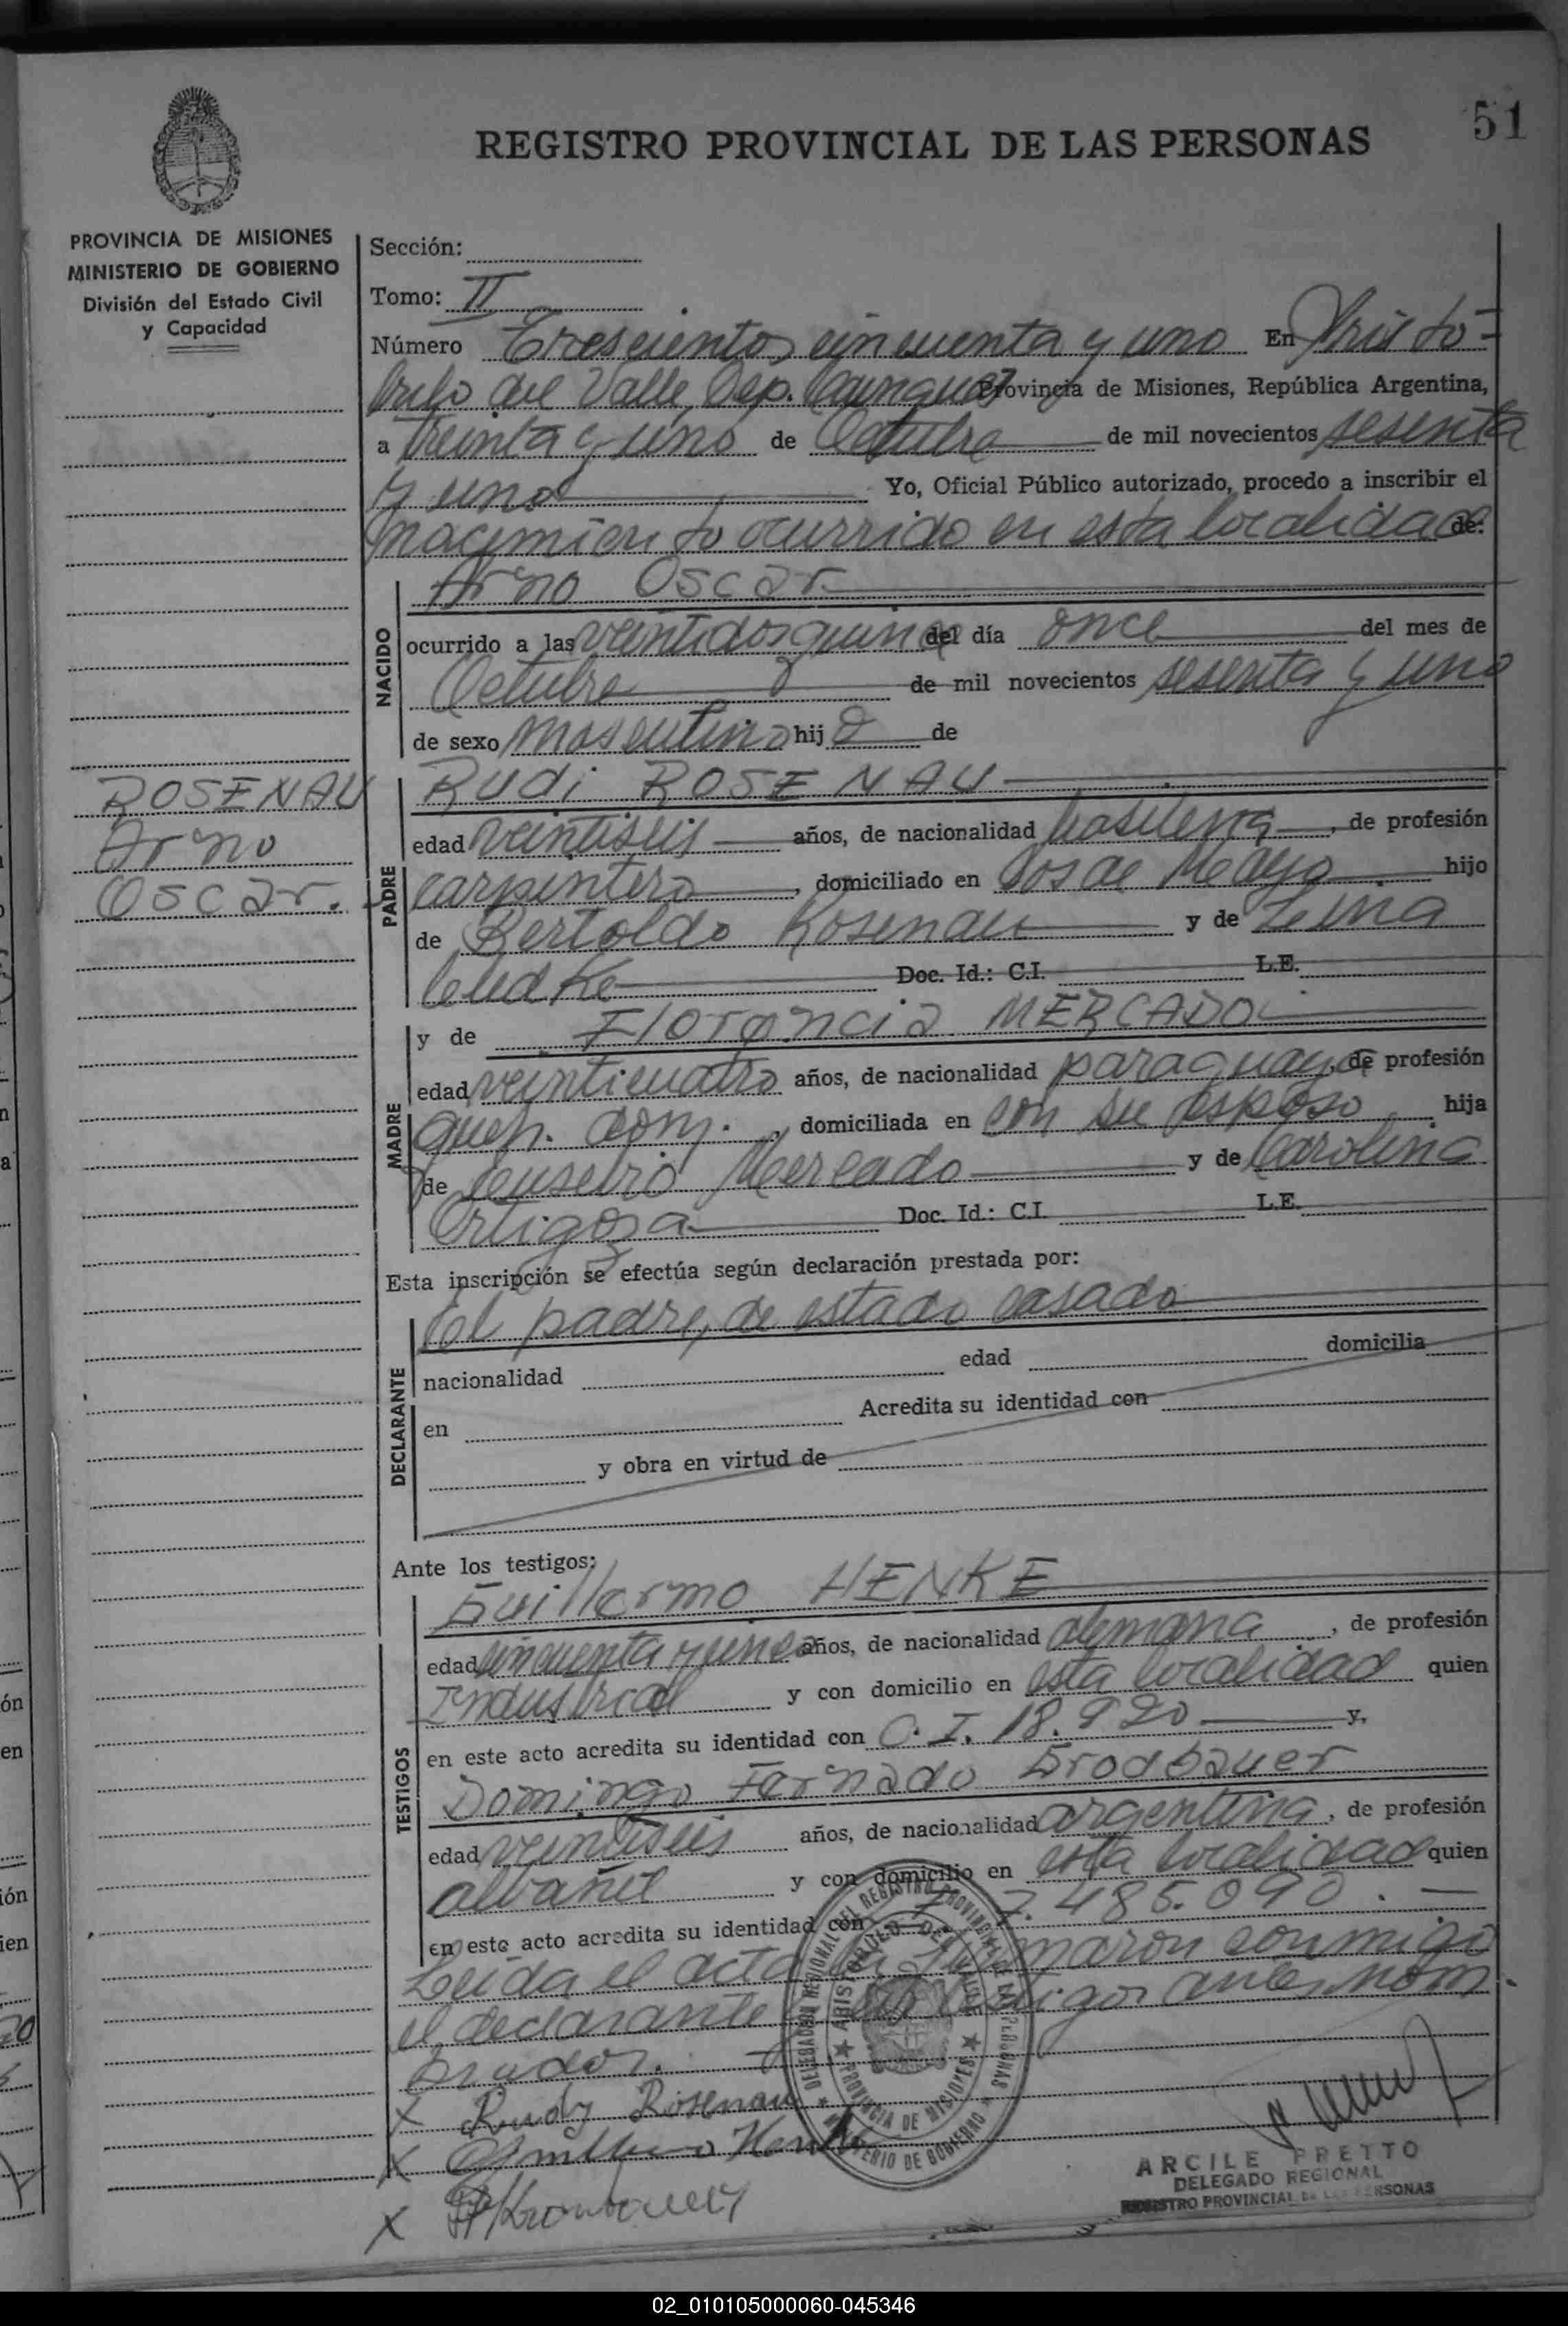 51
REGISTRO PROVINCIAL DE LAS PERSONAS
PROVINCIA DE MISIONES
MINISTERIO DE GOBIERNO
División del Estado Civil
y Capacidad
Sección:
Tomo: II
Número Trescientos cincuenta y uno En Aristó-
bulo del Valle, Dep. Cainguas Provincia de Misiones, República Argentina,
a treinta y uno de Octubre de mil novecientos sesenta
y uno Yo, Oficial Público autorizado, procedo a inscribir el
nacimiento ocurrido en esta localidad de:
NACIDO
Arno Oscar
ocurrido a las veintidos quince del día once del mes de
Octubre de mil novecientos sesenta y uno
de sexo masculino hijo de
ROSENAU
Arno
Oscar.
PADRE
Rudi ROSENAU
edad veintiseis años, de nacionalidad brasilera, de profesión
carpintero, domiciliado en Dos de Mayo hijo
de Bertoldo Rosenau y de
Doc. Id.: C.I. L.E.
MADRE
y de Florencia MERCADO
edad veinticuatro años, de nacionalidad paraguaya, de profesión
queh. dom., domiciliada en con su esposo hija
de Mercado y de Carolina
Ortigoza Doc. Id.: C.I. L.E.
Esta inscripción se efectúa según declaración prestada por:
DECLARANTE
El padre, de estado casado
nacionalidad edad domicilia
en Acredita su identidad con
y obra en virtud de
Ante los testigos:
TESTIGOS
Guillermo HENKE
edad cincuenta y uno años, de nacionalidad alemana, de profesión
Industrial y con domicilio en esta localidad quien
en este acto acredita su identidad con C.I. 18.920 y,
Domingo Fernado
edad veintiseis años, de nacionalidad argentina, de profesión
alvañil y con domicilio en esta localidad quien
en este acto acredita su identidad con 7.485.090.
Leida el acta la firmaron conmigo
el declarante y los testigos antes nom-
brados.
X Rudy Rosenau
X Guillermo Henke
X
DELEGACION REGIONAL DEL REGISTRO PROVINCIAL DE LAS PERSONAS
ARISTOBULO DEL VALLE
PROVINCIA DE MISIONES
MINISTERIO DE GOBIERNO
ARCILE PRETTO
DELEGADO REGIONAL
REGISTRO PROVINCIAL DE LAS PERSONAS
02_010105000060-045346